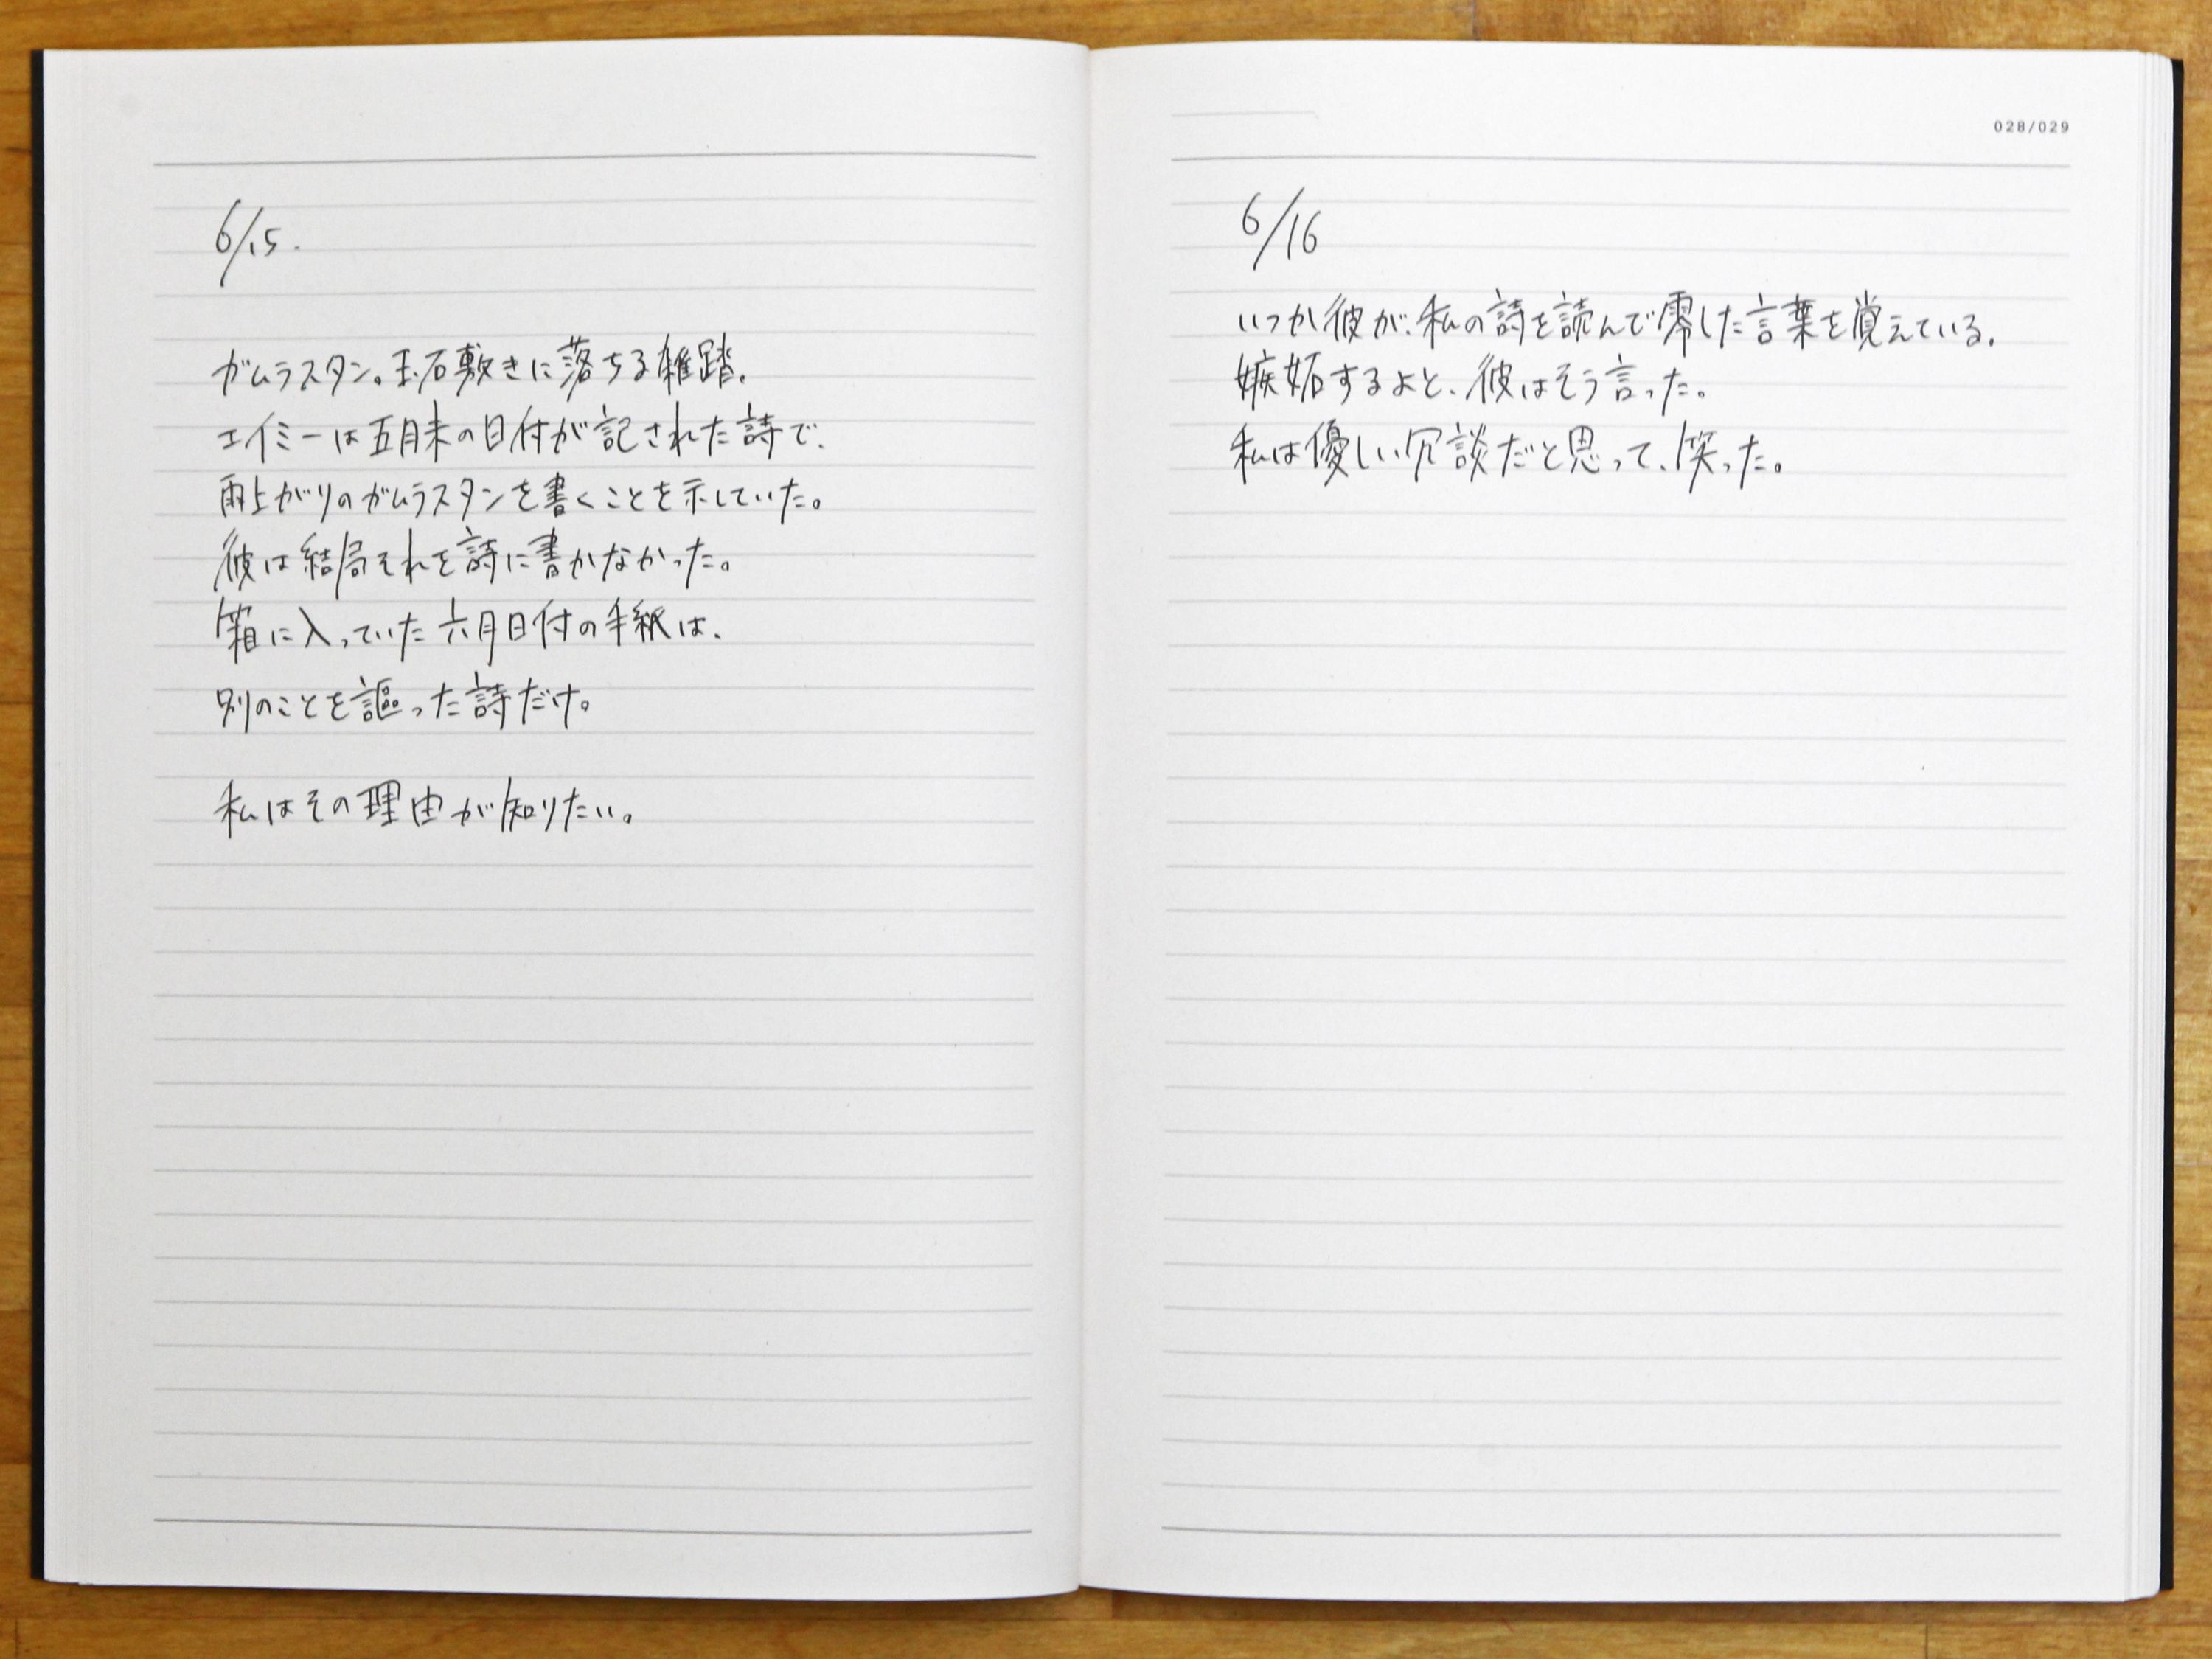 6/15.
ガムラスタン。玉石敷きに落ちる雑踏。
エイミーは五月末の日付が記された詩で、
雨上がりのガムラスタンを書くことを示していた。
彼は結局それを詩に書かなかった。
箱に入っていた六月日付の手紙は、
別のことを謳った詩だけ。
私はその理由が知りたい。
028/029
6/16
いつか彼が、私の詩を読んで零した言葉を覚えている。
嫉妬するよと、彼はそう言った。
私は優しい冗談だと思って、笑った。